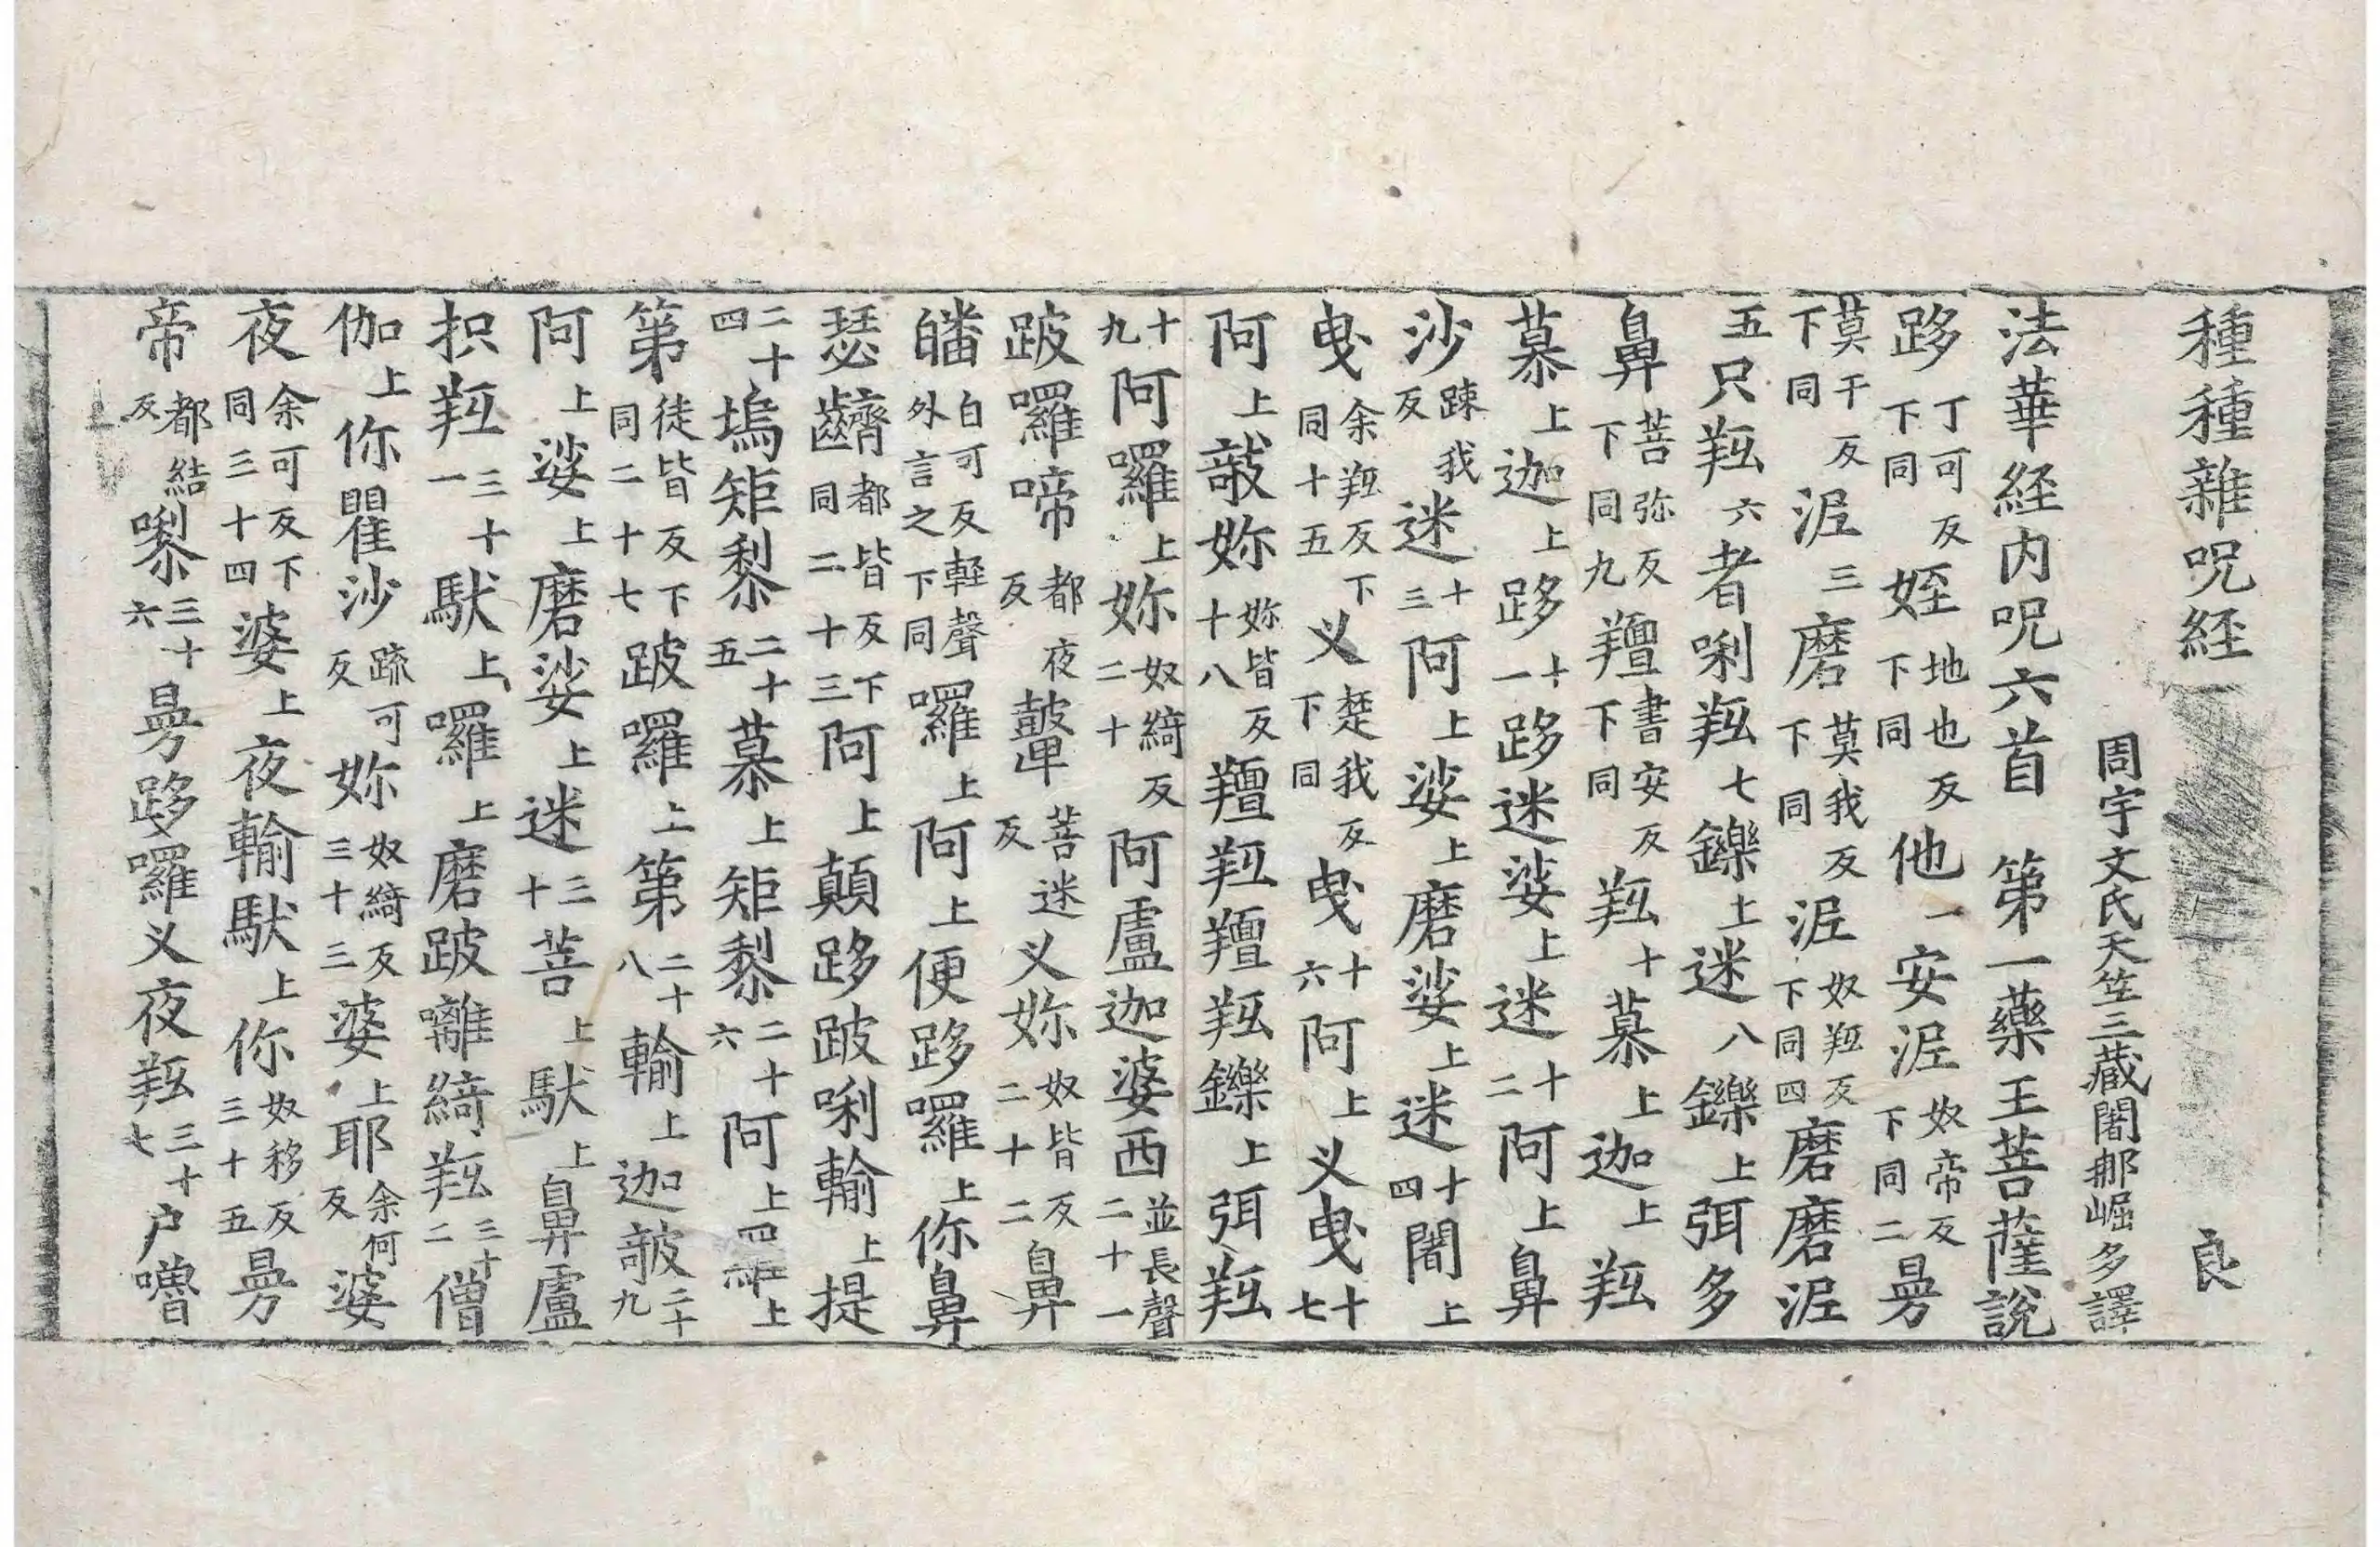 種種雜呪経 良
周宇文氏天竺三藏闍那崛多譯
法華経内呪六首 第一藥王菩薩說
跢丁可反下同姪地也反下同他一安泥奴帝反下同二曼
莫干反下同泥三磨莫我反下同泥奴羝反下同四磨磨泥
五只羝六者唎羝七鑠上迷八鑠上弭多
鼻菩弥反下同九羶書安反下同羝十慕上迦上羝
慕上迦上跢十一跢迷娑上迷十二阿上鼻
沙踈我反迷十三阿上娑上磨娑上迷十四闍上
曳余羝反下同十五义楚我反下同曳十六阿上义曳十七
阿上㪍妳妳皆反十八羶羝羶羝鑠上弭羝
十九阿囉上妳奴綺反二十阿盧迦婆西並長聲二十一
跛囉啼都夜反鼙菩迷反义妳奴皆反二十二鼻
皤白可反輕聲外言之下同囉上阿上便跢囉上你鼻
瑟齌都皆反下同二十三阿上顛跢跛唎輸上提
二十四塢矩黎二十五慕上矩黎二十六阿上囉上
第徒皆反下同二十七跛囉上第二十八輸上迦㪍二十九
阿上娑上磨娑上迷三十菩上馱上鼻盧
抧羝三十一馱上囉上磨跛離綺羝三十二僧
伽上你瞿沙踈可反妳奴綺反三十三婆上耶余何反婆
夜余可反下同三十四婆上夜輸馱上你奴移反三十五曼
帝都結反㗚三十六曼跢囉义夜羝三十七户嚕